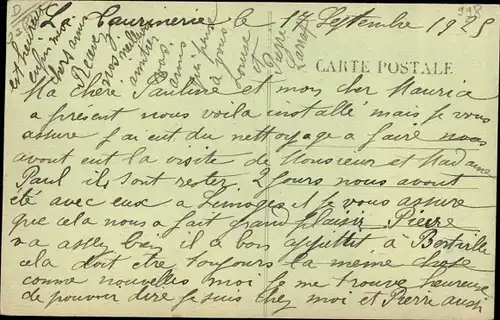 La Tannerie le 17 Septembre 1925
CARTE POSTALE
Ma chère Pauline et mon cher Maurice
a présent nous voila installé mais je vous
assure j'ai eut du nettoyage a faire nous
avont eut la visite de Monsieur et Madame
Paul ils sont restez 2 jours nous avont
été avec eux a Limoges et je vous assure
que cela nous a fait grand plaisir Pierre
va assez bien il a bon appétit a
cela doit etre toujours la meme chose
comme nouvelles moi je me trouve heureuse
de pouvoir dire je suis chez moi et Pierre aussi
est heureux
enfin mes
chers amis
Recevez
nos meilleures
amitiés
vos
amis
qui pense
a vous
Louise
et
Pierre